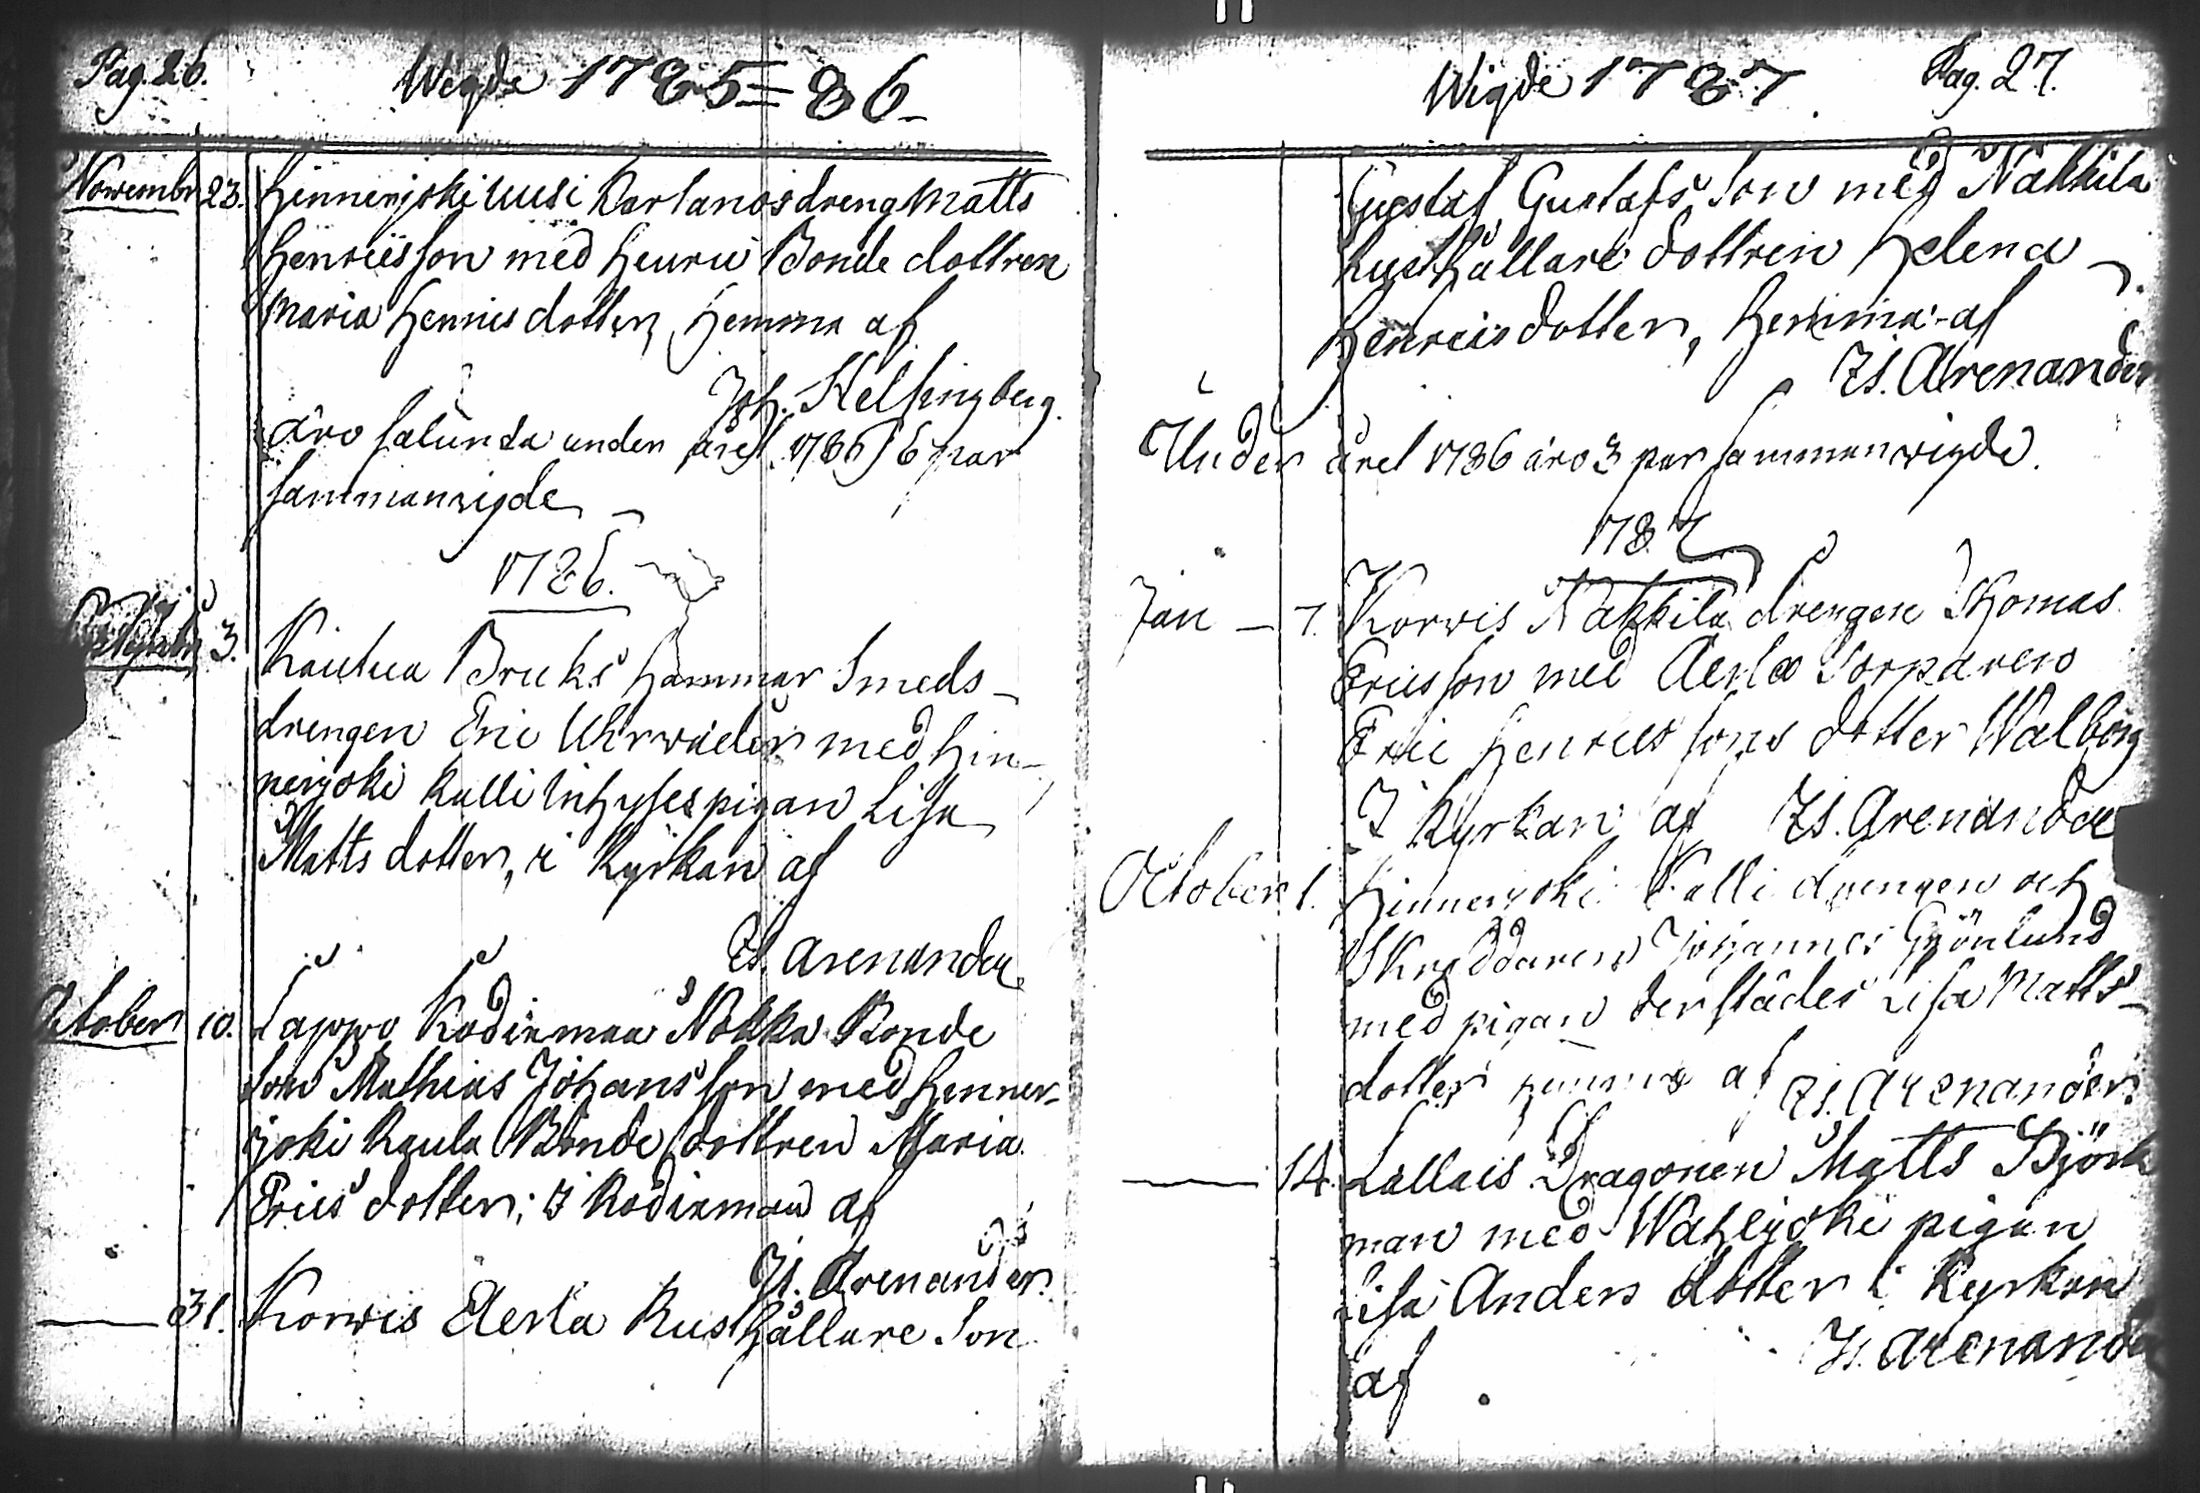 Pag. 26.
Wigde 1785=86
Novembr 23. Hinnerjoki uusi Kartanos dreng Matts
Henricsson med Heuru Bonde dottren
Maria Henrics dotter, hemma af
Joh. Helsingberg.
äro salunda under året 1785 6 par
sammanvigde
1786.
3. Kautua Bruks Hammar Smeds-
drengen Eric Uhrwäder med Hin-
nerjoki Kalli Inhyses pigan Lisa
Matts dotter, i Kyrkan af
Is. Arenander
October 10. Lappo Kodixmaa Nokka Bonde
son Mathias Johans son med Hinner-
joki Kaula Bonde dottren Maria
Erics dotter; i Kodixmaa af
Is. Arenander.
31. Korvis Eerla Rusthållare Son
Wigde 1787 Pag. 27.
Gustaf Gustafs Son med Nakkila
Rusthållare dottren Helena
Henrics dotter, hemma af
Is. Arenander
Under året 1786 äro 3 par sammanvigde.
1787
Jan - 7. Korvis Nakkila drengen Thomas
Ericsson med Aerla Torparen
Eric Henrics sons dotter Walborg
I Kyrkan af Is. Arenander
October 1. Hinnerjoki Kalli drengen och
Skreddaren Johannes Grönlund
med pigan derstädes Lisa Matts-
dotter hemma af Is. Arenander.
14. Lallais Dragonen Matts Björk
man med Wahejoki pigan
Lisa Anders dotter i Kyrkan
af Is. Arenand